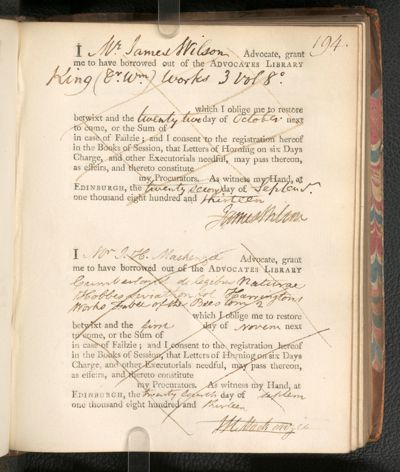 194.
I Mr. James Wilson Advocate, grant
me to have borrowed out of the ADVOCATES LIBRARY
King (Dr. Wm) Works 3 Vol 8o
which I oblige me to restore
betwixt and the twenty two day of October next
to come, or the Sum of
in case of Failzie; and I consent to the registration hereof
in the Books of Session, that Letters of Horning on six Days
Charge, and other Executorials needful, may pass thereon,
as effeirs, and thereto constitute
my Procurators. As witness my Hand, at
EDINBURGH, the twenty second day of Septemr.
one thousand eight hundred and thirteen
James Wilson
I Mr. J. H. Mackenzie Advocate, grant
me to have borrowed out of the ADVOCATES LIBRARY
Cumberland de legibus Naturae
Hobbes Harringtons
Works Fable of the Bees tom 2
which I oblige me to restore
betwixt and the first day of Novem next
to come, or the Sum of
in case of Failzie; and I consent to the registration hereof
in the Books of Session, that Letters of Horning on six Days
Charge, and other Executorials needful, may pass thereon,
as effeirs, and thereto constitute
my Procurators. As witness my Hand, at
EDINBURGH, the twenty day of Septem
one thousand eight hundred and thirteen
J H Mackenzie